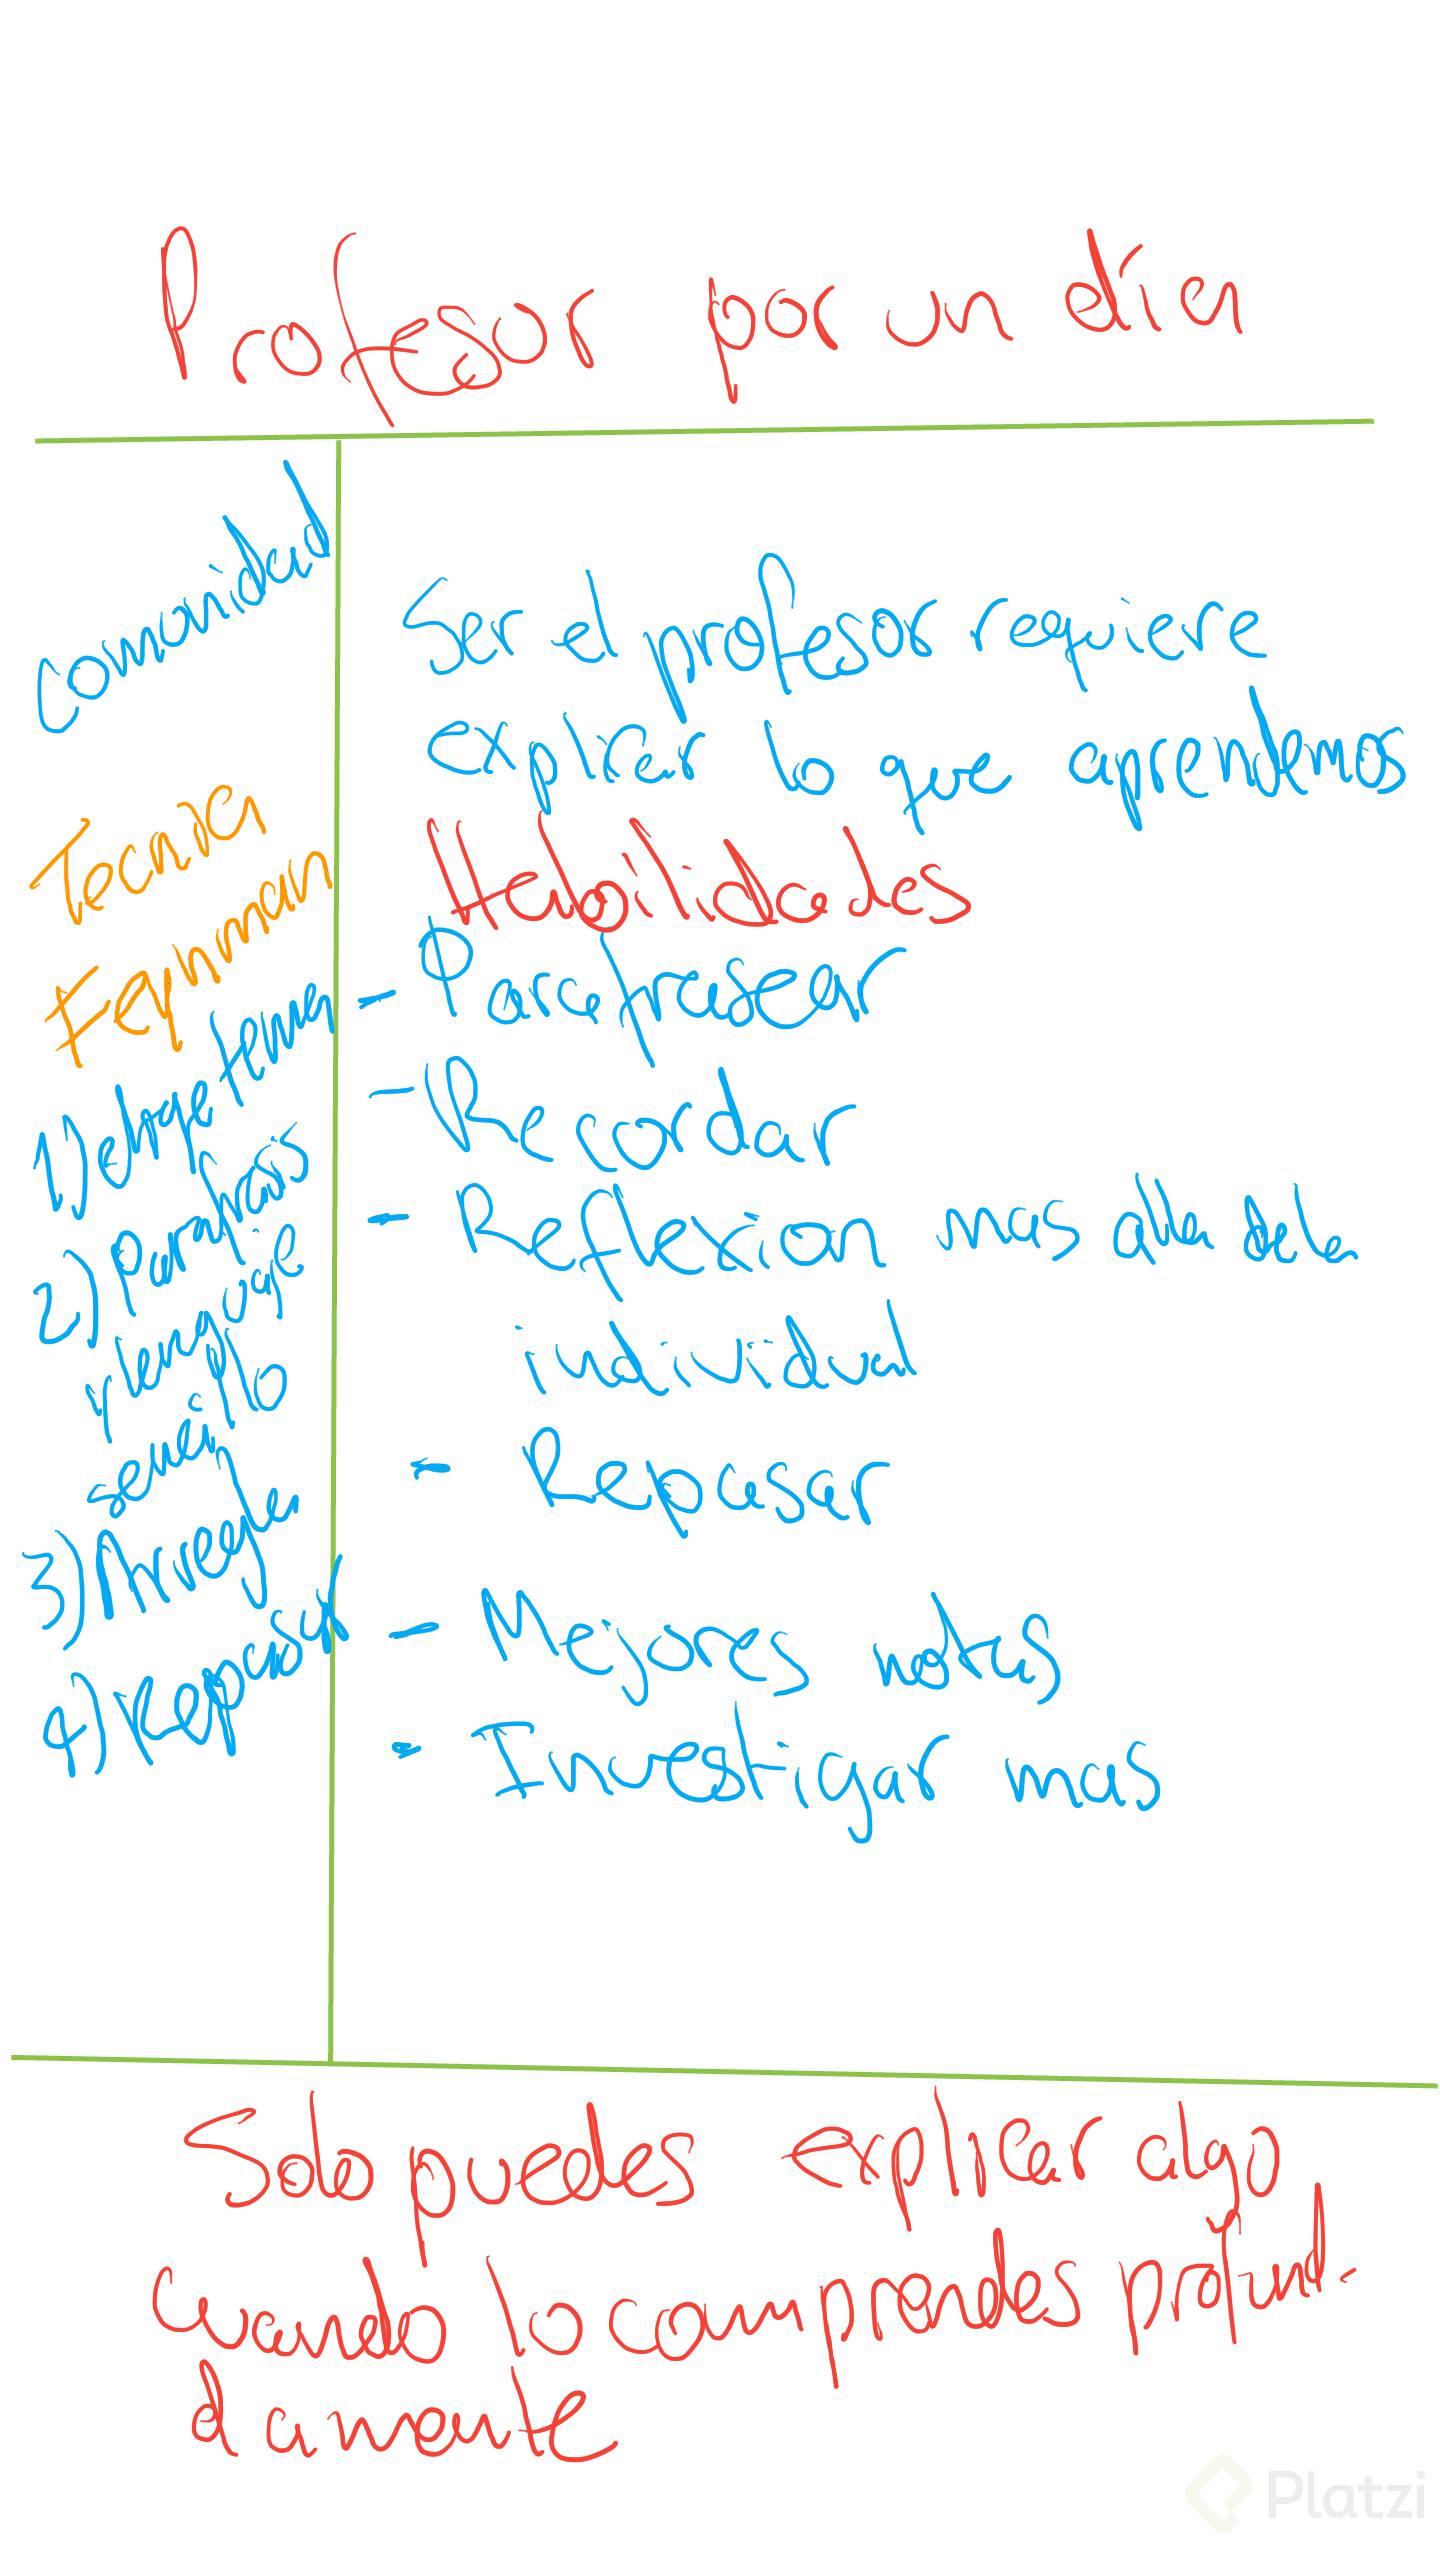 Profesor por un día
Comunidad
Tecnica
Feynman
1) elige tema
2) parafrasis
y lenguaje
sencillo
3) Arregla
4) Repasar
Ser el profesor requiere
explicar lo que aprendemos
Habilidades
- Parafrasear
- Recordar
- Reflexion mas alla de la
individual
- Repasar
- Mejores notas
- Investigar mas
Solo puedes explicar algo
cuando lo comprendes profund-
damente
Platzi